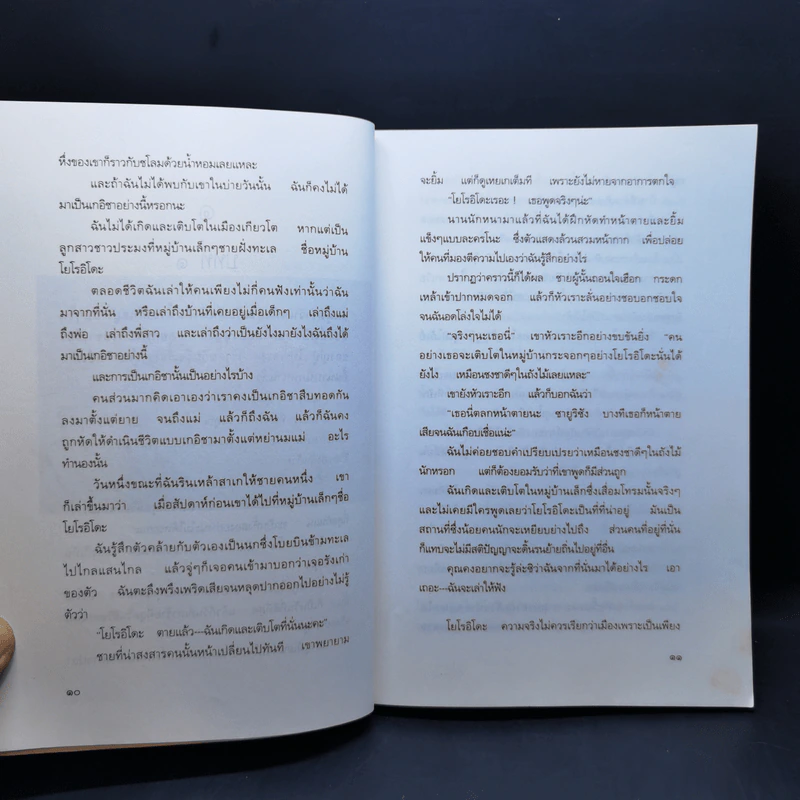 หึ่งของเขาก็ราวกับชโลมด้วยน้ำหอมเลยแหละ
และถ้าฉันไม่ได้พบกับเขาในบ่ายวันนั้น ฉันก็คงไม่ได้
มาเป็นเกอิชาอย่างนี้หรอกนะ
ฉันไม่ได้เกิดและเติบโตในเมืองเกียวโต หากแต่เป็น
ลูกสาวชาวประมงที่หมู่บ้านเล็กๆชายฝั่งทะเล ชื่อหมู่บ้าน
โยโรอิโดะ
ตลอดชีวิตฉันเล่าให้คนเพียงไม่กี่คนฟังเท่านั้นว่าฉัน
มาจากที่นั่น หรือเล่าถึงบ้านที่เคยอยู่เมื่อเด็กๆ เล่าถึงแม่
ถึงพ่อ เล่าถึงพี่สาว และเล่าถึงว่าเป็นยังไงมายังไงฉันถึงได้
มาเป็นเกอิชาอย่างนี้
และการเป็นเกอิชานั้นเป็นอย่างไรบ้าง
คนส่วนมากคิดเอาเองว่าเราคงเป็นเกอิชาสืบทอดกัน
ลงมาตั้งแต่ยาย จนถึงแม่ แล้วก็ถึงฉัน แล้วก็ฉันคง
ถูกหัดให้ดำเนินชีวิตแบบเกอิชามาตั้งแต่หย่านมแม่ อะไร
ทำนองนั้น
วันหนึ่งขณะที่ฉันรินเหล้าสาเกให้ชายคนหนึ่ง เขา
ก็เล่าขึ้นมาว่า เมื่อสัปดาห์ก่อนเขาได้ไปที่หมู่บ้านเล็กๆชื่อ
โยโรอิโดะ
ฉันรู้สึกตัวคล้ายกับตัวเองเป็นนกซึ่งโบยบินข้ามทะเล
ไปไกลแสนไกล แล้วจู่ๆก็เจอคนเข้ามาบอกว่าเจอรังเก่า
ของตัว ฉันตะลึงพรึงเพริดเสียจนหลุดปากออกไปอย่างไม่รู้
ตัวว่า
"โยโรอิโดะ ตายแล้ว---ฉันเกิดและเติบโตที่นั่นนะคะ"
ชายที่น่าสงสารคนนั้นหน้าเปลี่ยนไปทันที เขาพยายาม
๑๐
จะยิ้ม แต่ก็ดูเหยเกเต็มที เพราะยังไม่หายจากอาการตกใจ
"โยโรอิโดะเรอะ ! เธอพูดจริงๆน่ะ"
นานนักหนามาแล้วที่ฉันได้ฝึกหัดทำหน้าตายและยิ้ม
แข็งๆแบบละครโนะ ซึ่งตัวแสดงล้วนสวมหน้ากาก เพื่อปล่อย
ให้คนที่มองตีความไปเองว่าฉันรู้สึกอย่างไร
ปรากฏว่าคราวนี้ก็ได้ผล ชายผู้นั้นถอนใจเฮือก กระดก
เหล้าเข้าปากหมดจอก แล้วก็หัวเราะลั่นอย่างชอบอกชอบใจ
จนฉันอดโล่งใจไม่ได้
"จริงๆนะเธอนี่" เขาหัวเราะอีกอย่างขบขันยิ่ง "คน
อย่างเธอจะเติบโตในหมู่บ้านกระจอกๆอย่างโยโรอิโดะนั่นได้
ยังไง เหมือนชงชาดีๆในถังไม้เลยแหละ"
เขายังหัวเราะอีก แล้วก็บอกฉันว่า
"เธอนี่ตลกหน้าตายนะ ซายูริซัง บางทีเธอก็หน้าตาย
เสียจนฉันเกือบเชื่อแน่ะ"
ฉันไม่ค่อยชอบคำเปรียบเปรยว่าเหมือนชงชาดีๆในถังไม้
นักหรอก แต่ก็ต้องยอมรับว่าที่เขาพูดก็มีส่วนถูก
ฉันเกิดและเติบโตในหมู่บ้านเล็กซึ่งเสื่อมโทรมนั้นจริงๆ
และไม่เคยมีใครพูดเลยว่าโยโรอิโดะเป็นที่ที่น่าอยู่ มันเป็น
สถานที่ซึ่งน้อยคนนักจะเหยียบย่างไปถึง ส่วนคนที่อยู่ที่นั่น
ก็แทบจะไม่มีสติปัญญาจะดิ้นรนย้ายถิ่นไปอยู่ที่อื่น
คุณคงอยากจะรู้ล่ะซิว่าฉันจากที่นั่นมาได้อย่างไร เอา
เถอะ---ฉันจะเล่าให้ฟัง
โยโรอิโดะ ความจริงไม่ควรเรียกว่าเมืองเพราะเป็นเพียง
๑๑